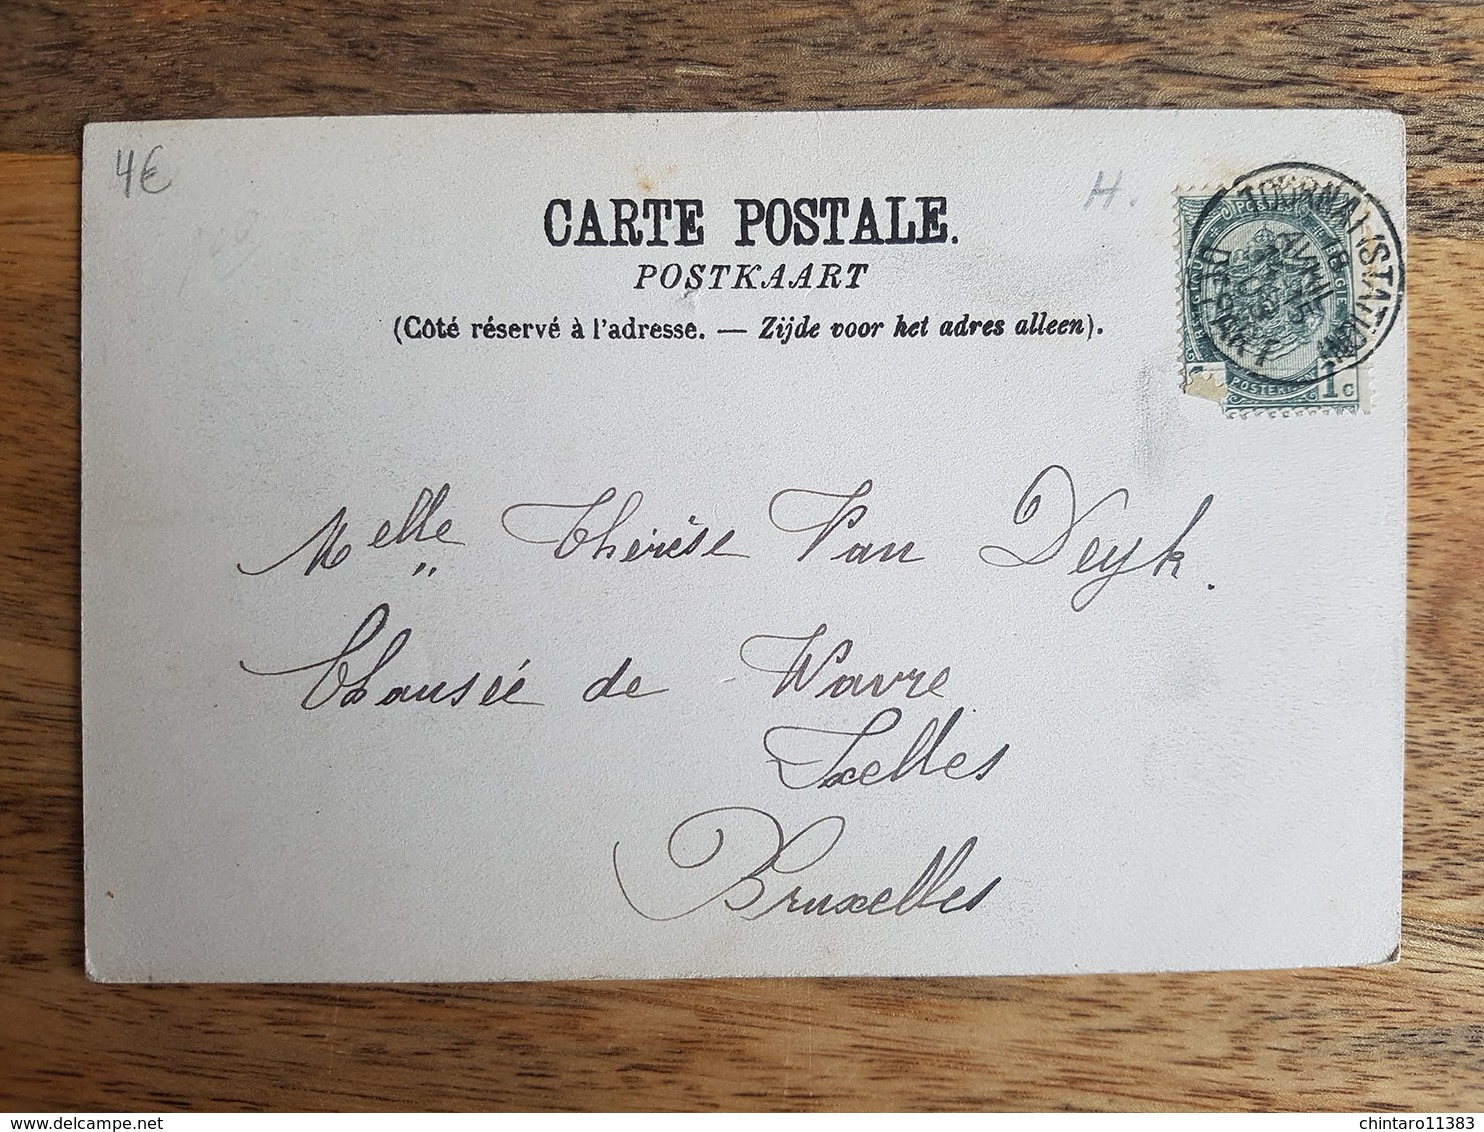 4€
H.
CARTE POSTALE.
POSTKAART
(Côté réservé à l'adresse. — Zijde voor het adres alleen).
TOURNAI (STATION)
18
AVRIL
DÉPART
POSTERIJEN 1c
Melle Thérèse Van Deyk.
Chausée de Wavre
Ixelles
Bruxelles
delcampe.net
chintaro11383